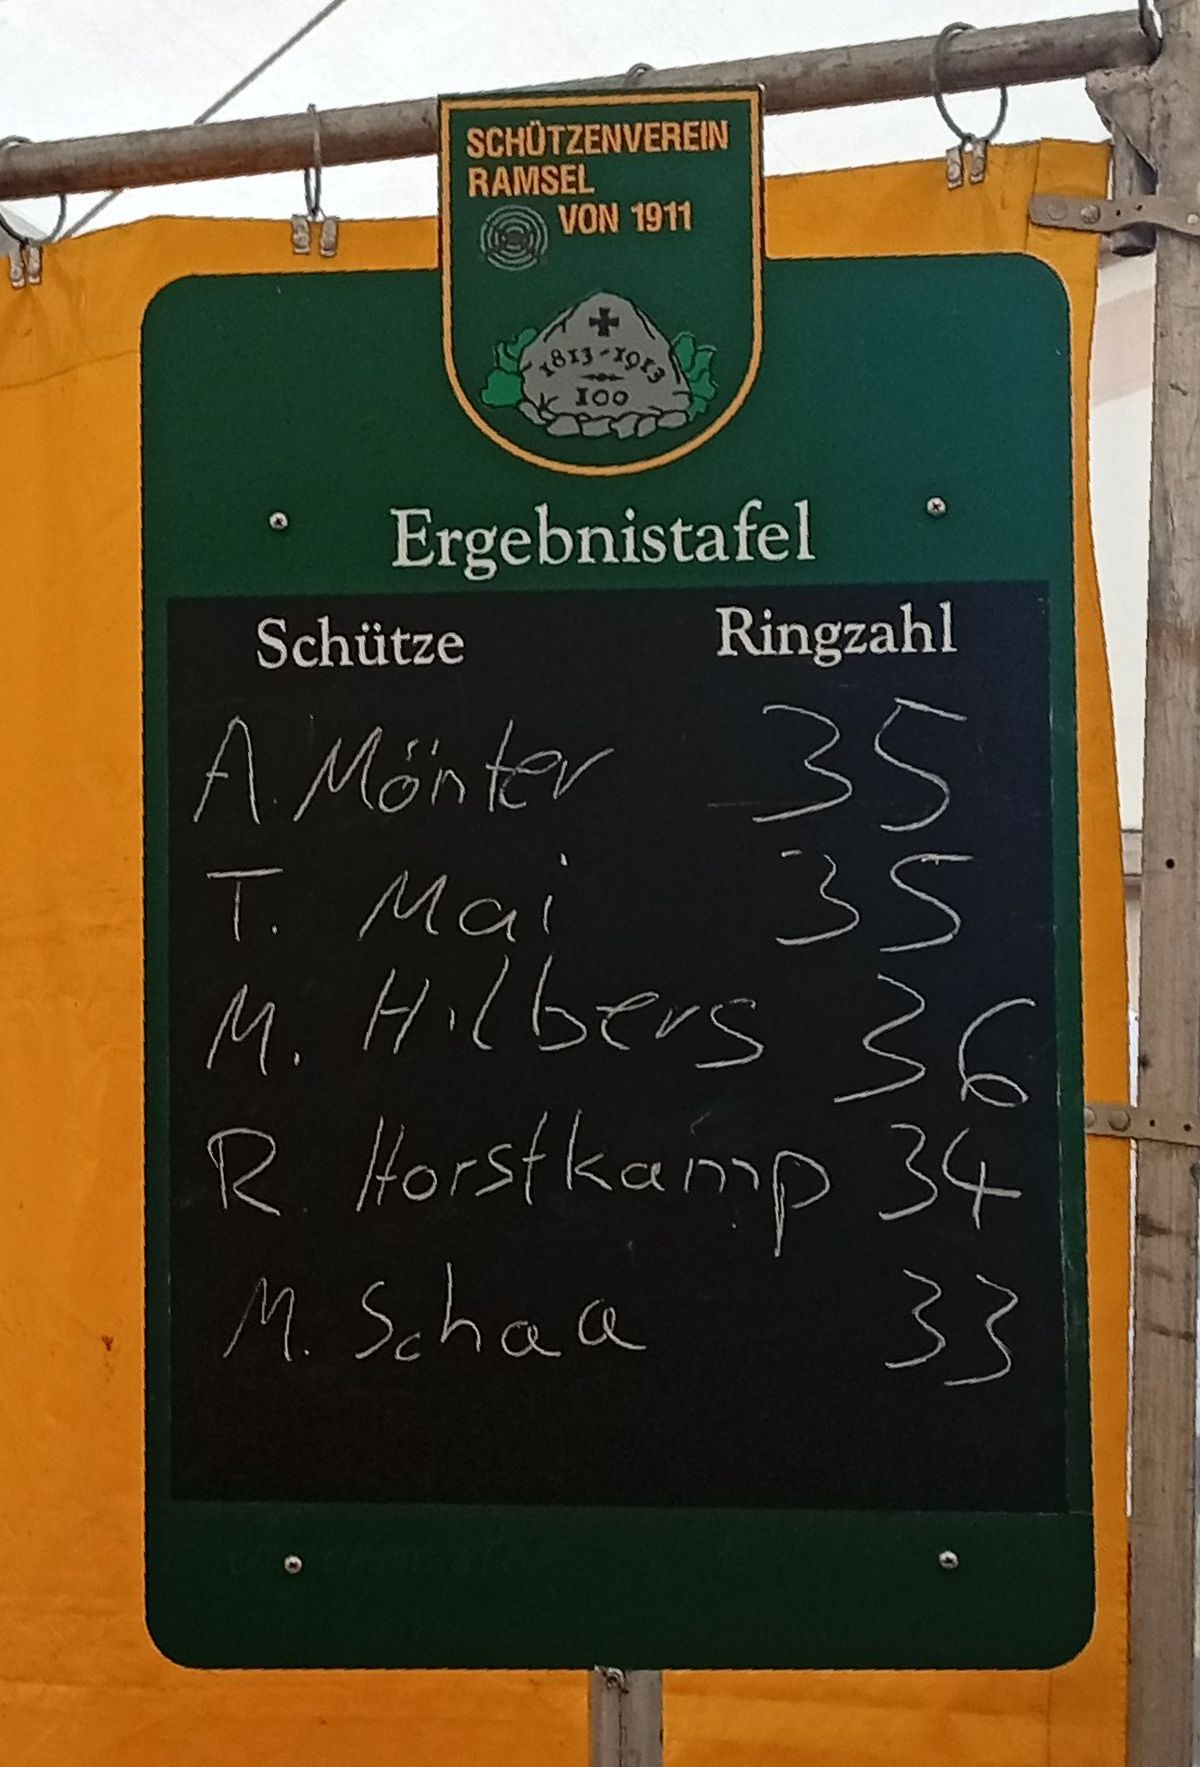 SCHÜTZENVEREIN
RAMSEL
VON 1911
1813-1913
100
Ergebnistafel
Schütze Ringzahl
A. Mönter 35
T. Mai 35
M. Hilbers 36
R. Horstkamp 34
M. Schaa 33